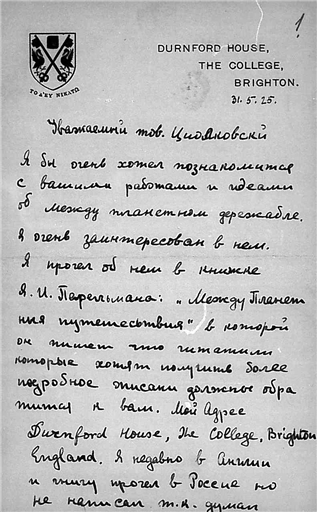 1
DURNFORD HOUSE,
THE COLLEGE,
BRIGHTON.
ΤΟ Δ'ΕΥ ΝΙΚΑΤΩ
31.5.25.
Уважаемый тов. Циолковский
Я бы очень хотел познакомится
с вашими работами и идеами
об между планетном дережабле.
Я очень заинтересован в нем.
Я прочел об нем в книжке
Я. И. Перельмана: „Между Планет
ныя путешествия" в которой
он пишет что читатили
которые хотят получить более
подробное описани должны обра
тится к вам. Мой Адрес
Durnford House, The College, Brighton
England. Я недавно в Англии
и книгу прочел в России но
не написал т.к. думал